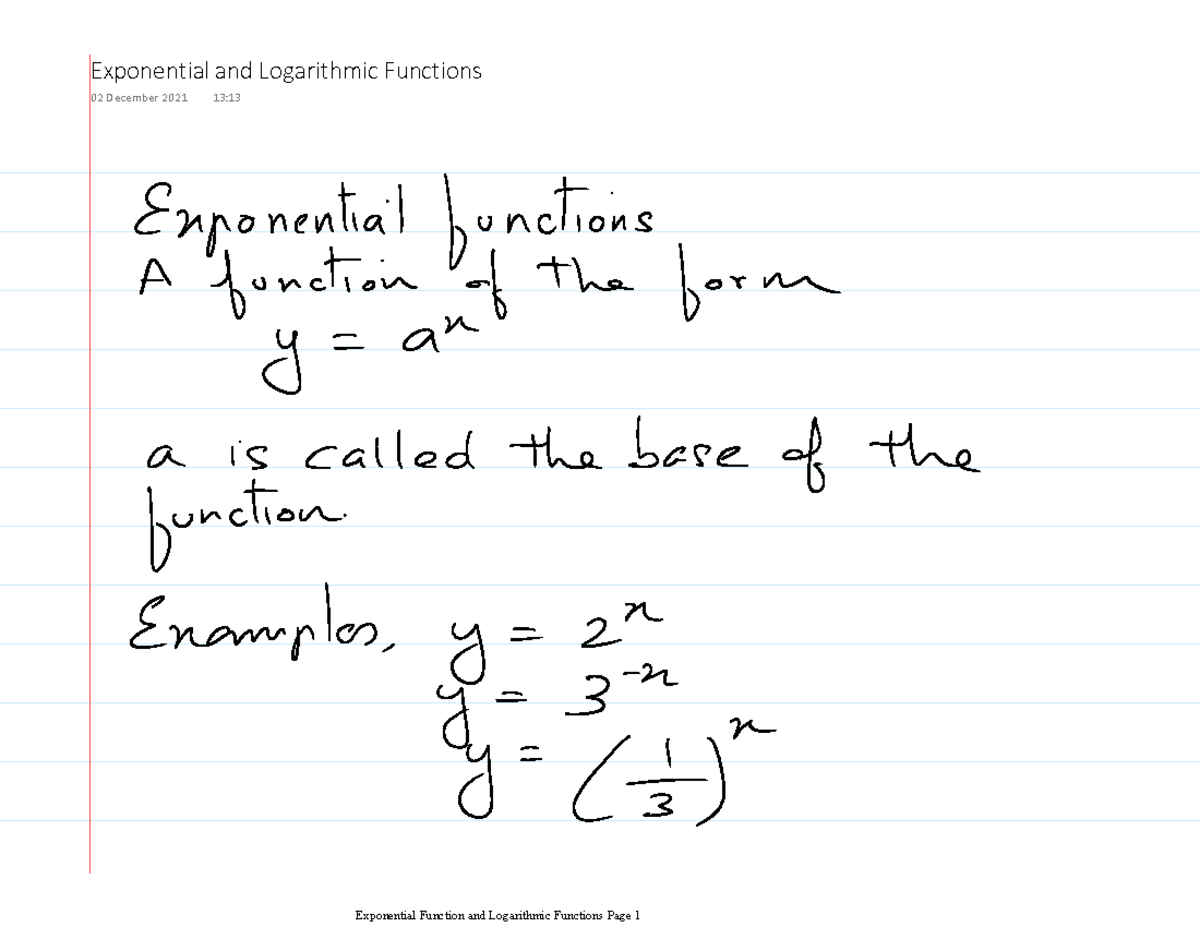 Exponential and Logarithmic Functions
02 December 2021 13:13
Exponential functions
A function of the form
y = aˣ
a is called the base of the
function.
Examples, y = 2ˣ
y = 3⁻ˣ
y = (1/3)ˣ
Exponential Function and Logarithmic Functions Page 1